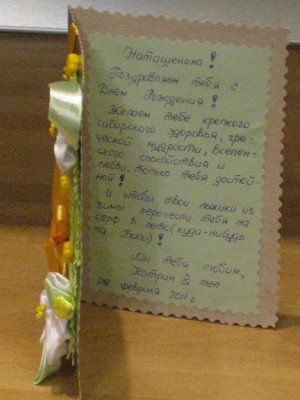 Наташенька!
Поздравляем тебя с
Днём Рождения!
Желаем тебе крепкого
сибирского здоровья, гре-
ческой мудрости, вселен-
ского спокойствия и
любви, только тебя достой-
ной!
И чтобы твои лыжики из
зимы перенесли тебя на
сёрф в лето (куда-нибудь
на Бали)!
Мы тебя любим,
Катрин &
28 февраля 2011 г.